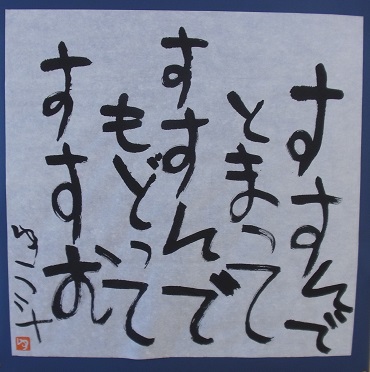 すすんで
とまって
すすんで
もどって
すすむ